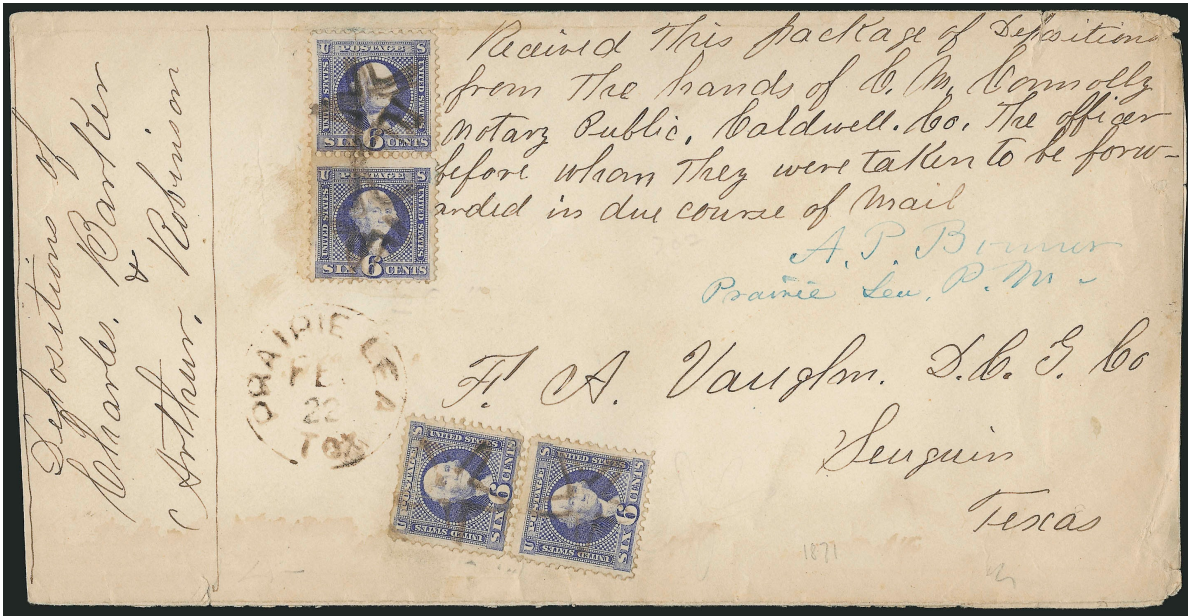 Depositions of
Charles. Barker
&
Arthur. Robinson
U POSTAGE S
UNITED STATES
UNITED STATES
SIX 6 CENTS
U POSTAGE S
UNITED STATES
UNITED STATES
SIX 6 CENTS
Received This package of Depositions
from The hands of C. M. Connolly
Notary Public. Caldwell. Co. The officer
before whom They were taken to be forw-
arded in due course of Mail
A. P. Bonner
Prairie Lea, P. M.
PRAIRIE LEA
FE
22
TEX
F. A. Vaughn. D. C. G. Co
Seuguin
Texas
U POSTAGE S
UNITED STATES
UNITED STATES
SIX 6 CENTS
U POSTAGE S
UNITED STATES
UNITED STATES
SIX 6 CENTS
1871